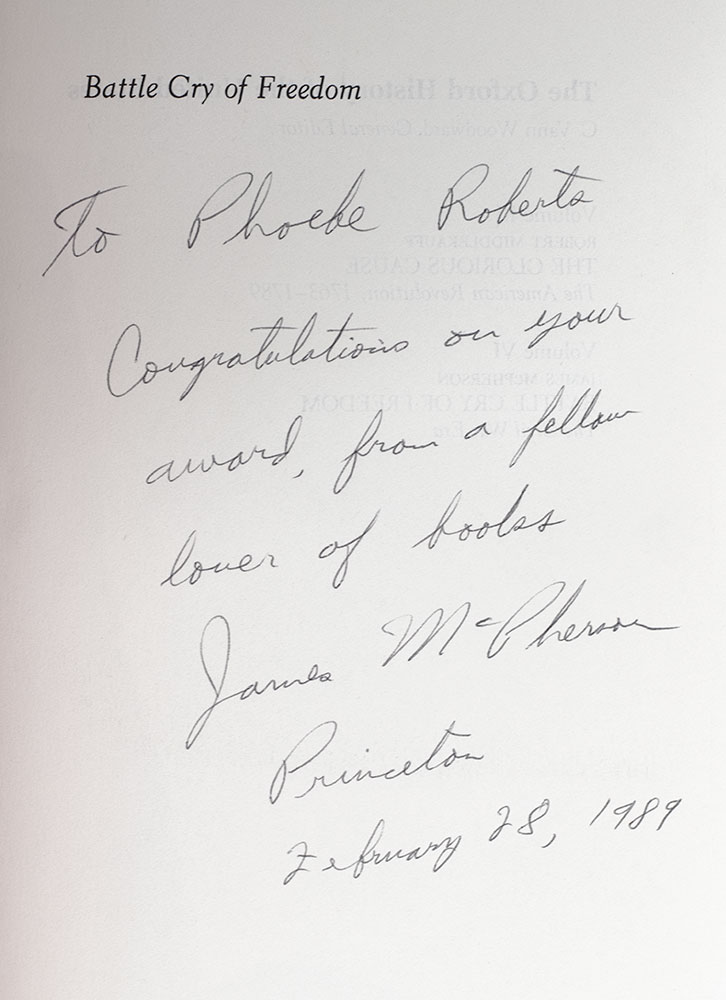 Battle Cry of Freedom
To Phoebe Roberts
Congratulations on your
award, from a fellow
lover of books
James McPherson
Princeton
February 28, 1989
The Oxford History of the United States
C. Vann Woodward, General Editor
Volume
ROBERT MIDDLEKAUFF
THE GLORIOUS CAUSE
The American Revolution, 1763–1789
Volume VI
JAMES MCPHERSON
BATTLE CRY OF FREEDOM